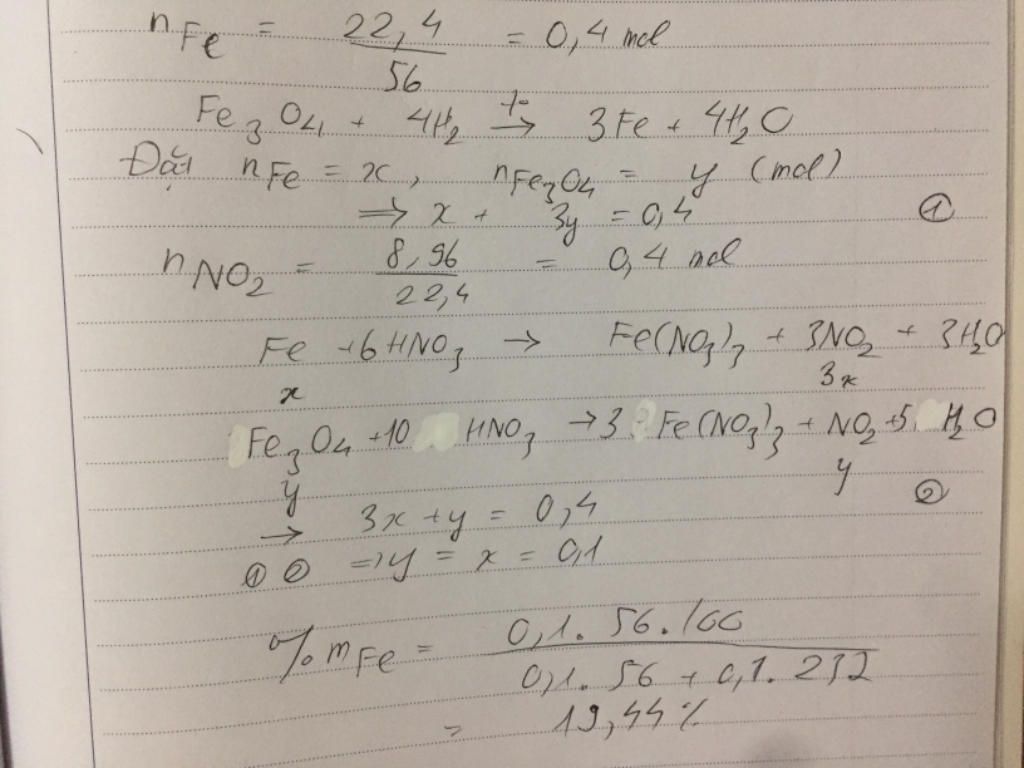 nFe = 22,4 / 56 = 0,4 mol
Fe3O4 + 4H2 t° → 3Fe + 4H2O
Đặt nFe = x, nFe3O4 = y (mol)
⇒ x + 3y = 0,4 ①
nNO2 = 8,96 / 22,4 = 0,4 mol
Fe + 6HNO3 → Fe(NO3)3 + 3NO2 + 3H2O
x 3x
Fe3O4 + 10 HNO3 → 3 Fe(NO3)3 + NO2 + 5 H2O
y y
→ 3x + y = 0,4 ②
① ② ⇒ y = x = 0,1
%mFe = 0,1. 56. 100 / 0,1. 56 + 0,1. 232
= 19,44%